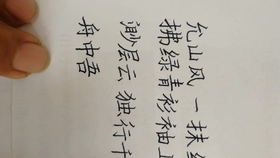 允山风一抹
拂绿青衫袖
渺层云独行千
舟中吾